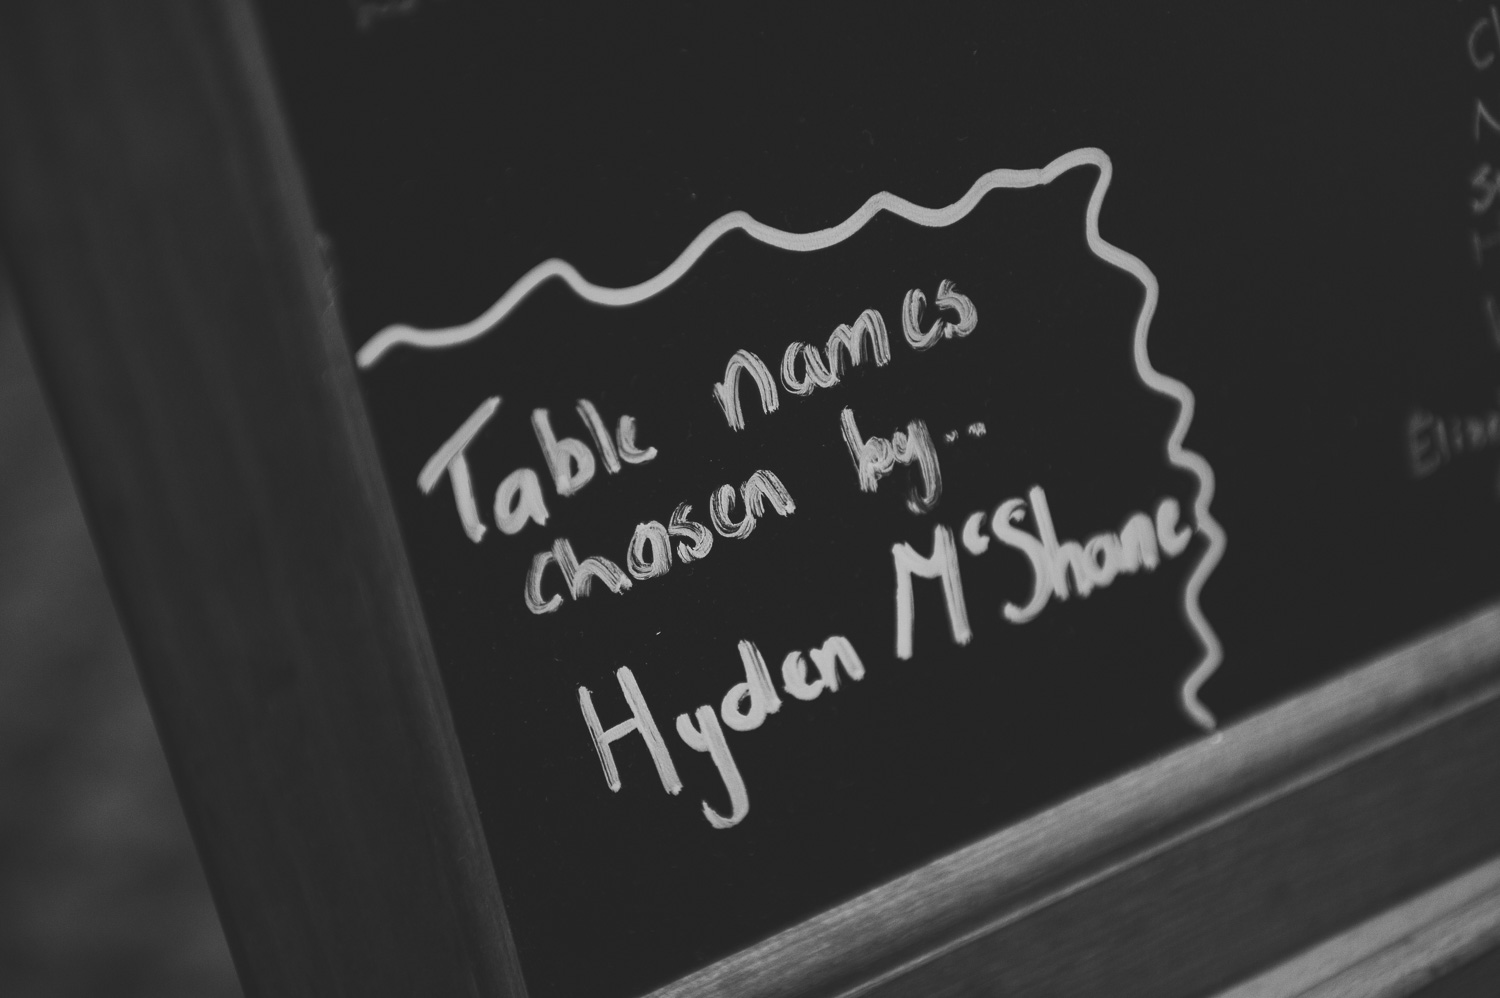 Table names
chosen by...
Hyden McShane